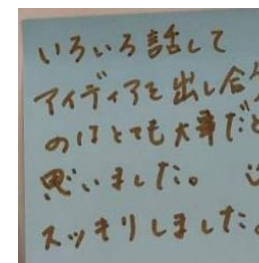 いろいろ話して
アイディアを出し合う
のはとても大事だと
思いました。
スッキリしました。